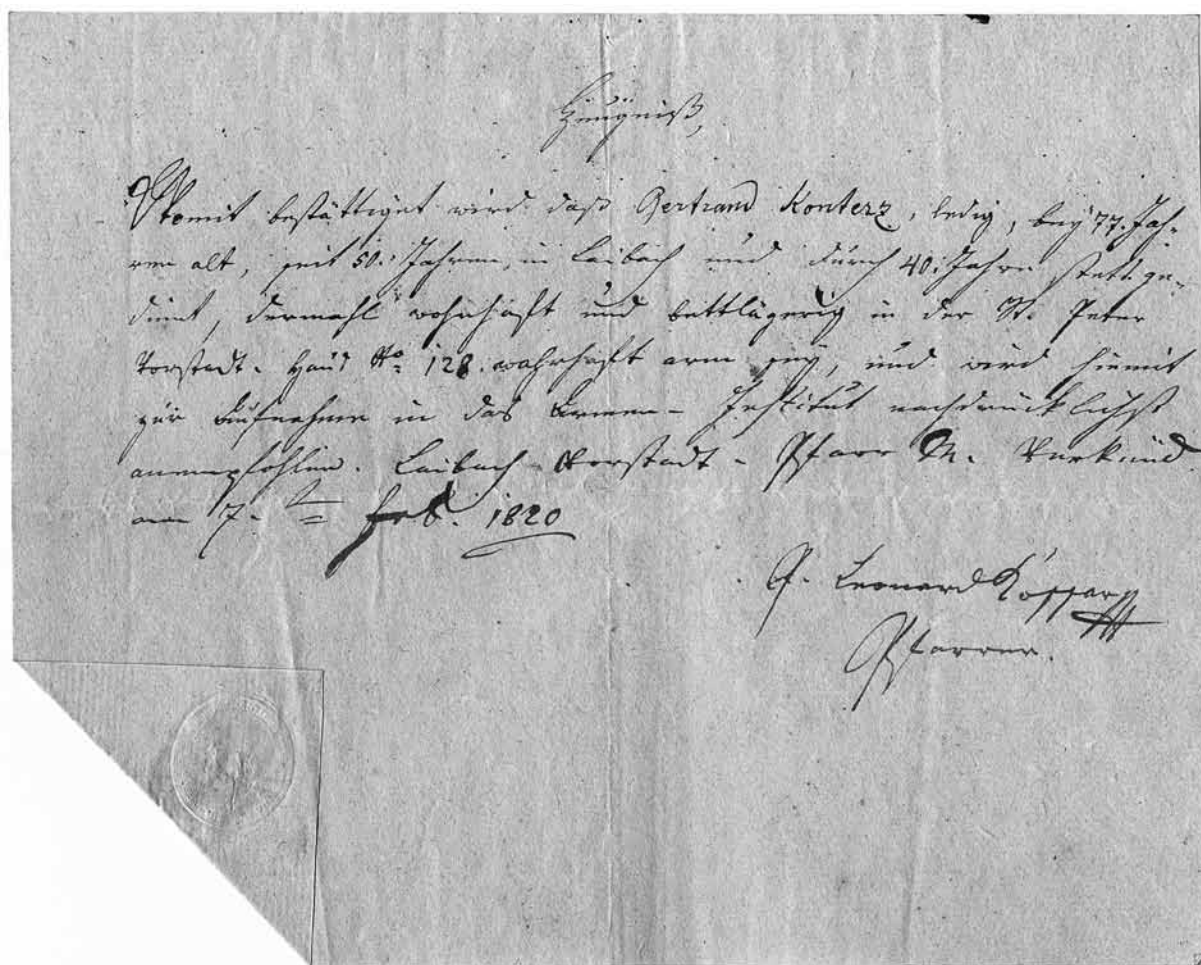 Zeugniß,
Womit bestättiget wird daß Gertraud Konterz, ledig, bey 77. Jah-
ren alt, seit 50. Jahren, in Laibach und durch 40. Jahre stett ge-
dient, dermahl wohnhaft und bettlägerig in der St. Peter
Vorstadt. Haus No 128. wahrhaft arm sey, und wird hiemit
zur Aufnahme in das Armen-Institut nachdrücklichst
anempfohlen. Laibach Vorstadt-Pfarr M. Verkünd
am 7. Feb. 1820
P. Leonard
Pfarrer.